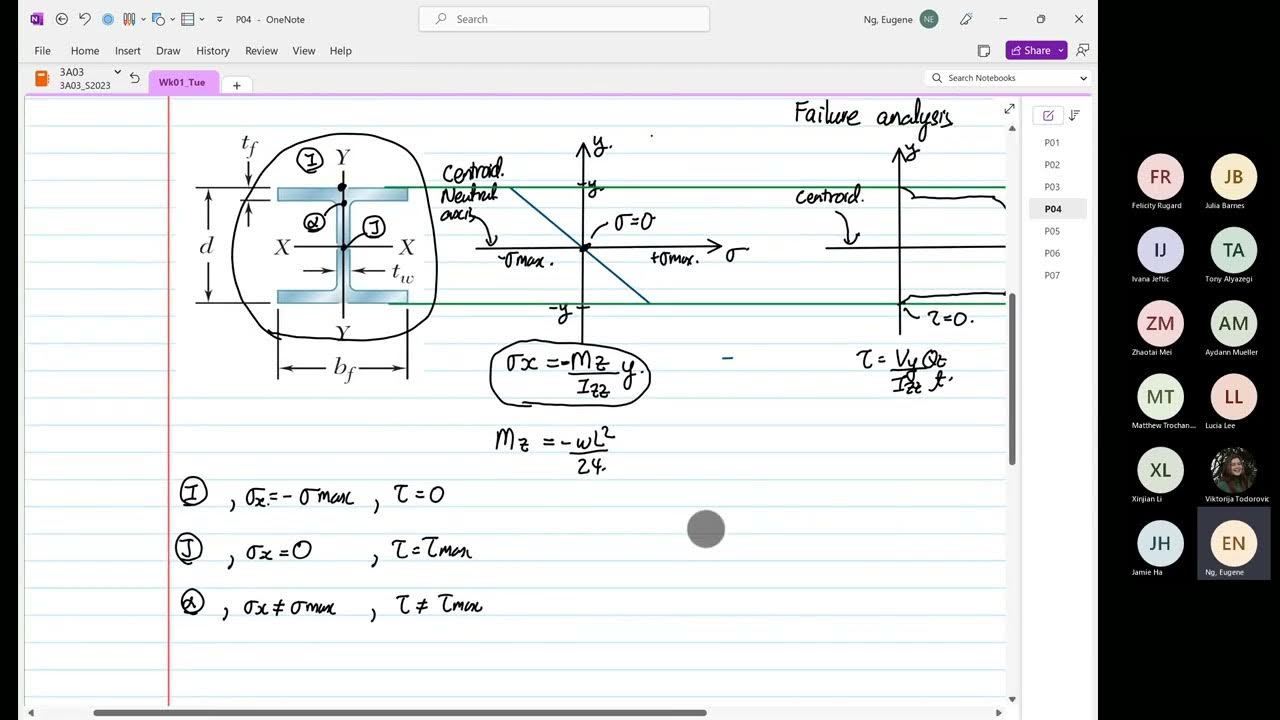 P04 - OneNote
Search
Ng, Eugene
NE
File Home Insert Draw History Review View Help
Share
3A03
3A03_S2023
Wk01_Tue
+
Search Notebooks
Failure analysis
P01
P02
P03
P04
P05
P06
P07
tf
I
Y
d
α
J
X X
tw
Y
bf
Centroid.
Neutral axis
y.
y
σ=0
-σmax.
+σmax.
σ
-y
y
Centroid.
τ=0.
σx = -Mz/Izz y.
τ = Vy Qz/Izz t.
Mz = -wL²/24.
I , σx = - σmax , τ = 0
J , σx = 0 , τ = τmax
α , σx ≠ σmax , τ ≠ τmax
FR JB
Felicity Rugard Julia Barnes
IJ TA
Ivana Jeftic Tony Alyazegi
ZM AM
Zhaotai Mei Aydann Mueller
MT LL
Matthew Trochan... Lucia Lee
XL
Xinjian Li Viktorija Todorovic
JH EN
Jamie Ha Ng, Eugene